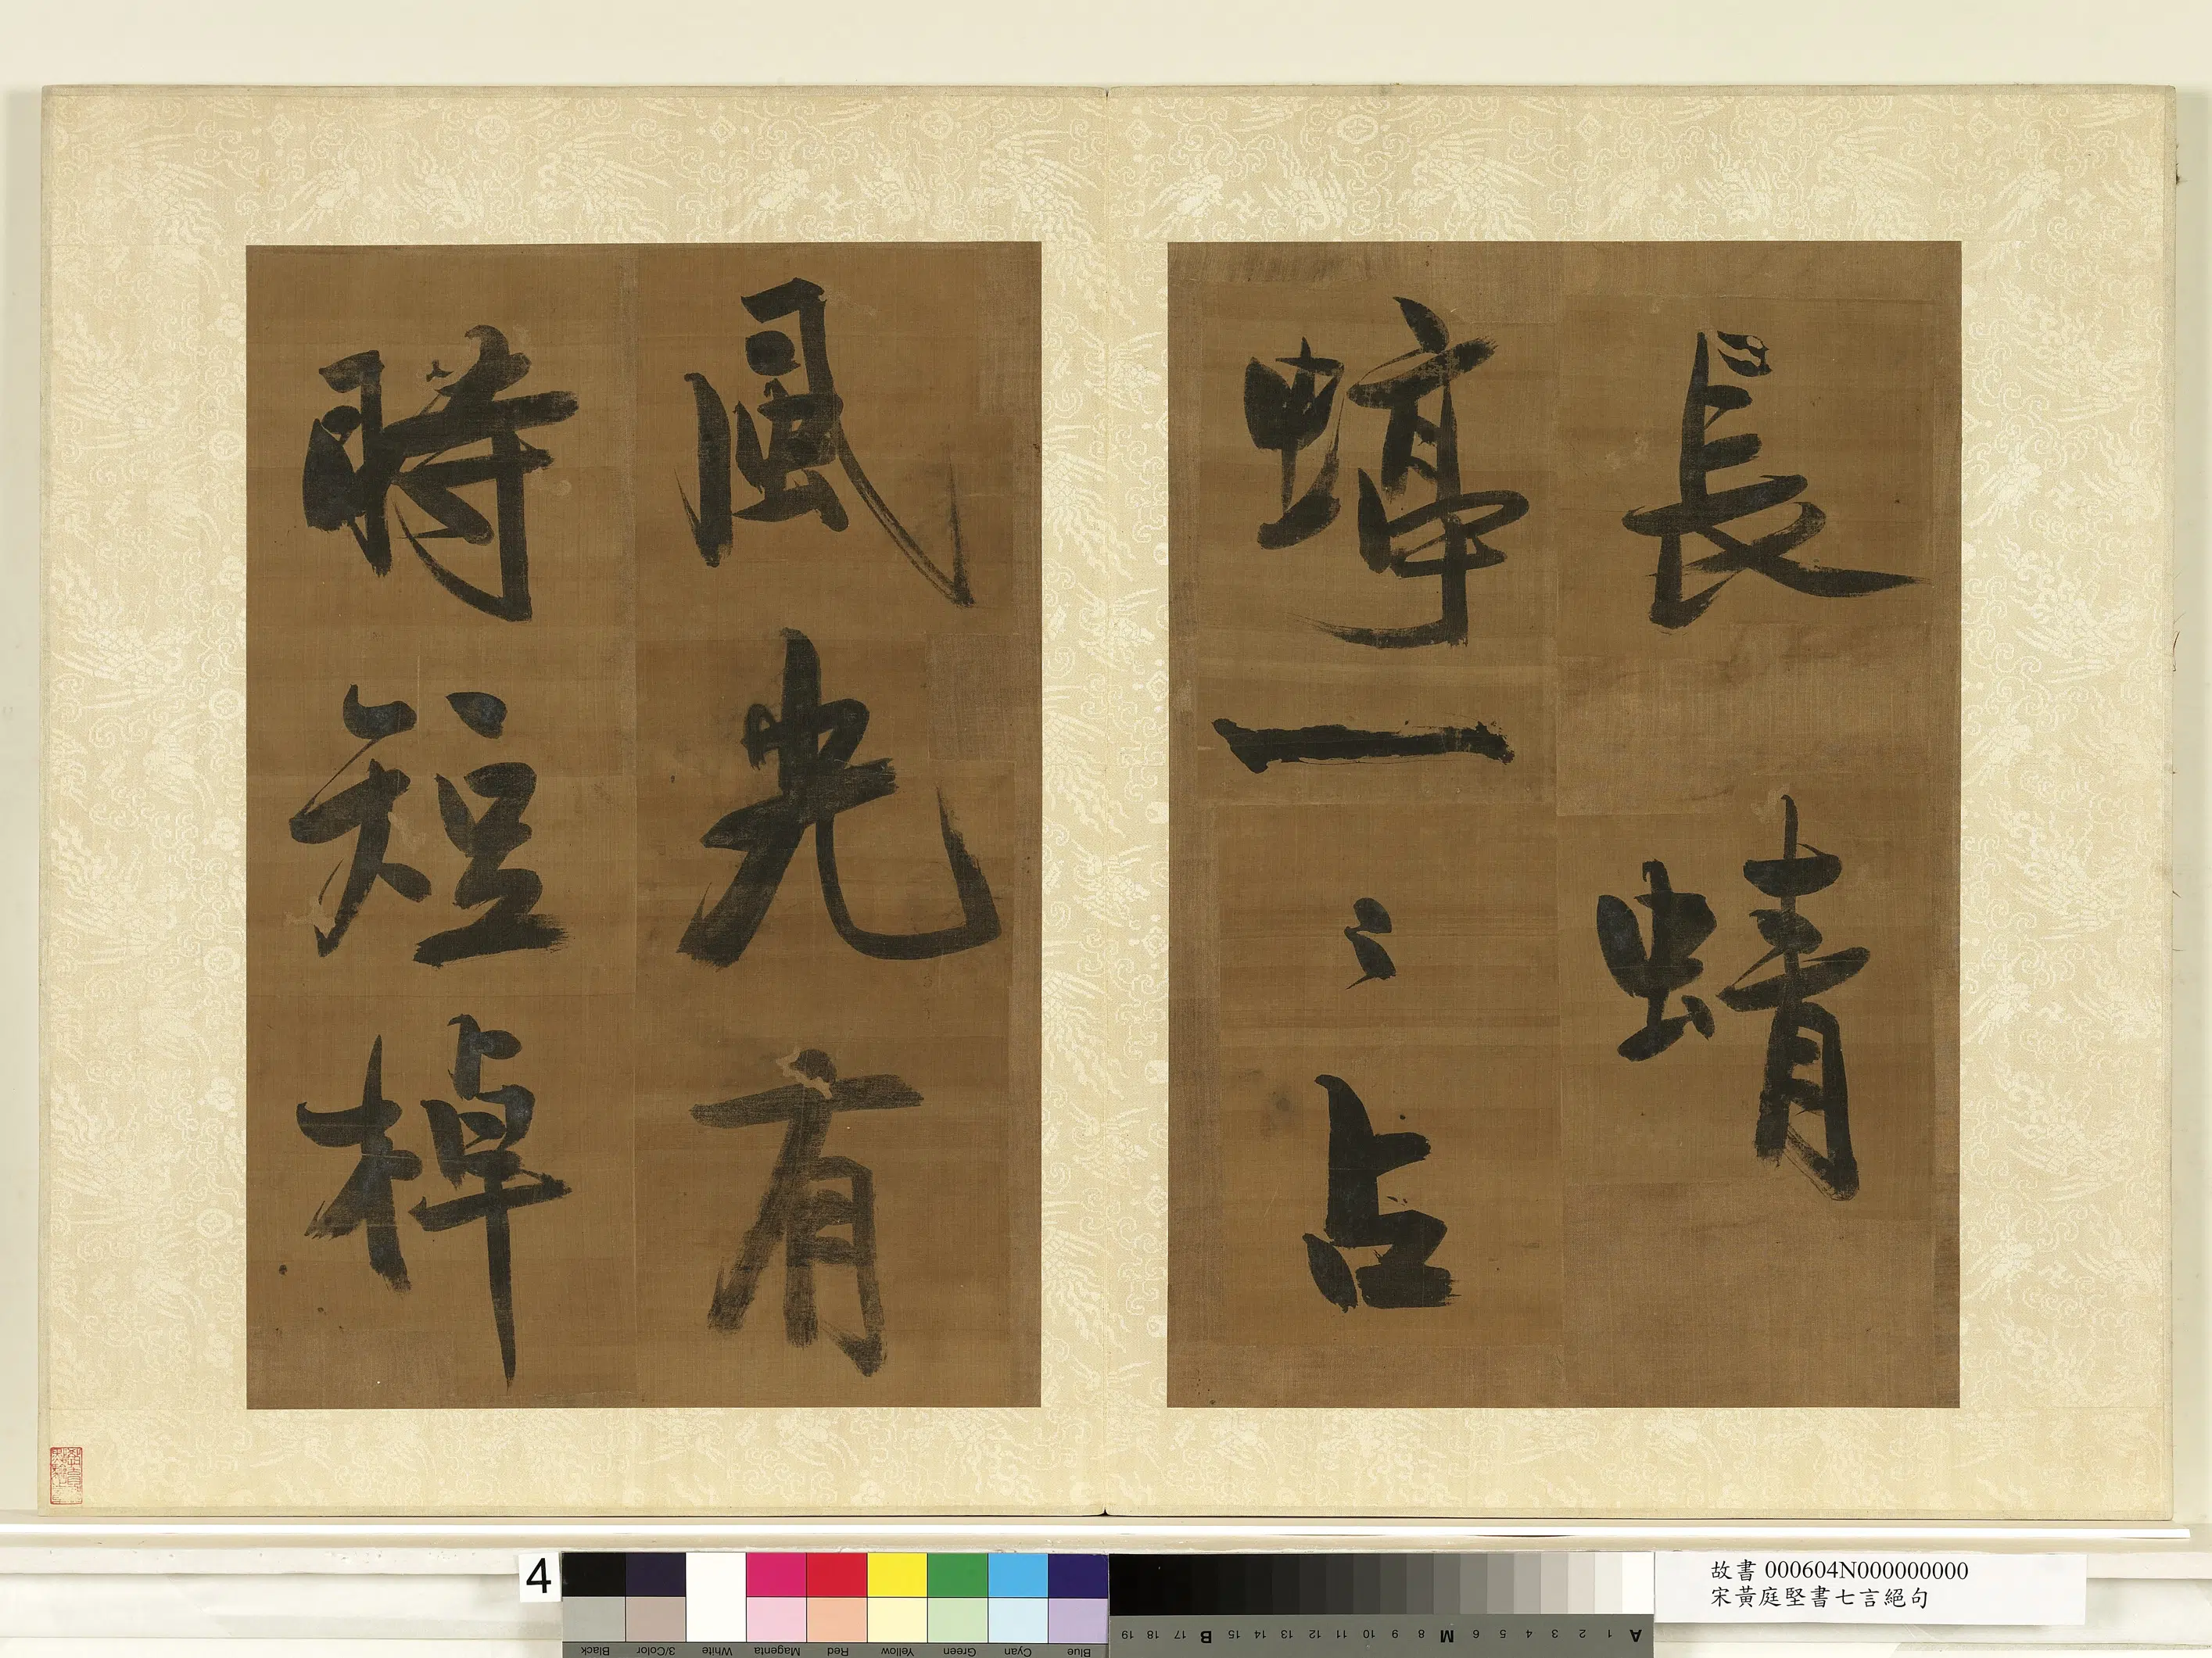 長蜻
蜓一〻占
風光有
時短棹
4
故書 000604N000000000
宋黃庭堅書七言絕句
Black 3/Color White Magenta Red Yellow Green Cyan Blue
19 18 17 B 15 14 13 12 11 10 9 8 M 6 5 4 3 2 1 A